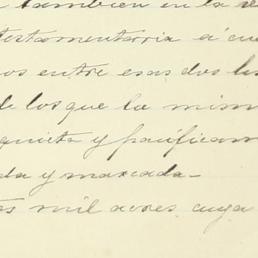 también en la
testamentaria á
entre esas dos
de los que la mism
quieta y pacificam
da y marcada
mil acres, cuya